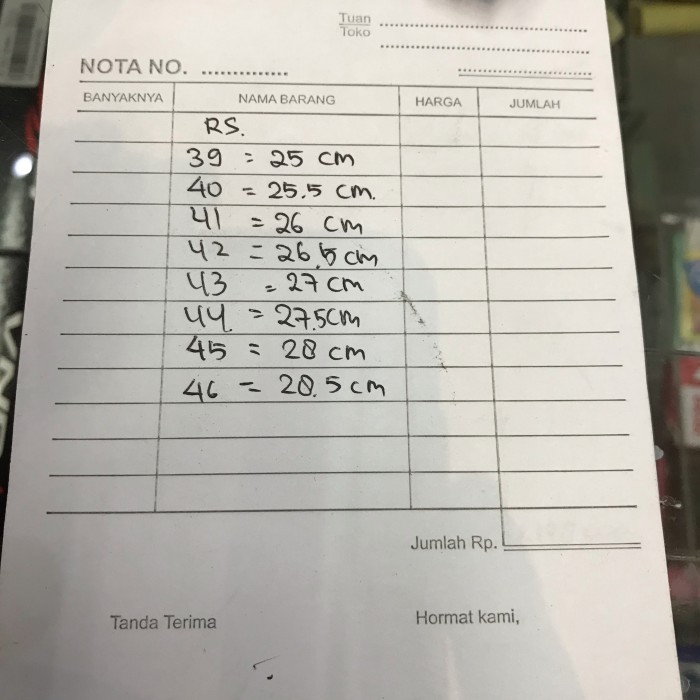 Tuan
Toko
NOTA NO.
BANYAKNYA NAMA BARANG HARGA JUMLAH
RS.
39 = 25 cm
40 = 25.5 cm.
41 = 26 cm
42 = 26.5 cm
43 = 27 cm
44 = 27.5cm
45 = 28 cm
46 = 28.5 cm
Jumlah Rp.
Tanda Terima Hormat kami,